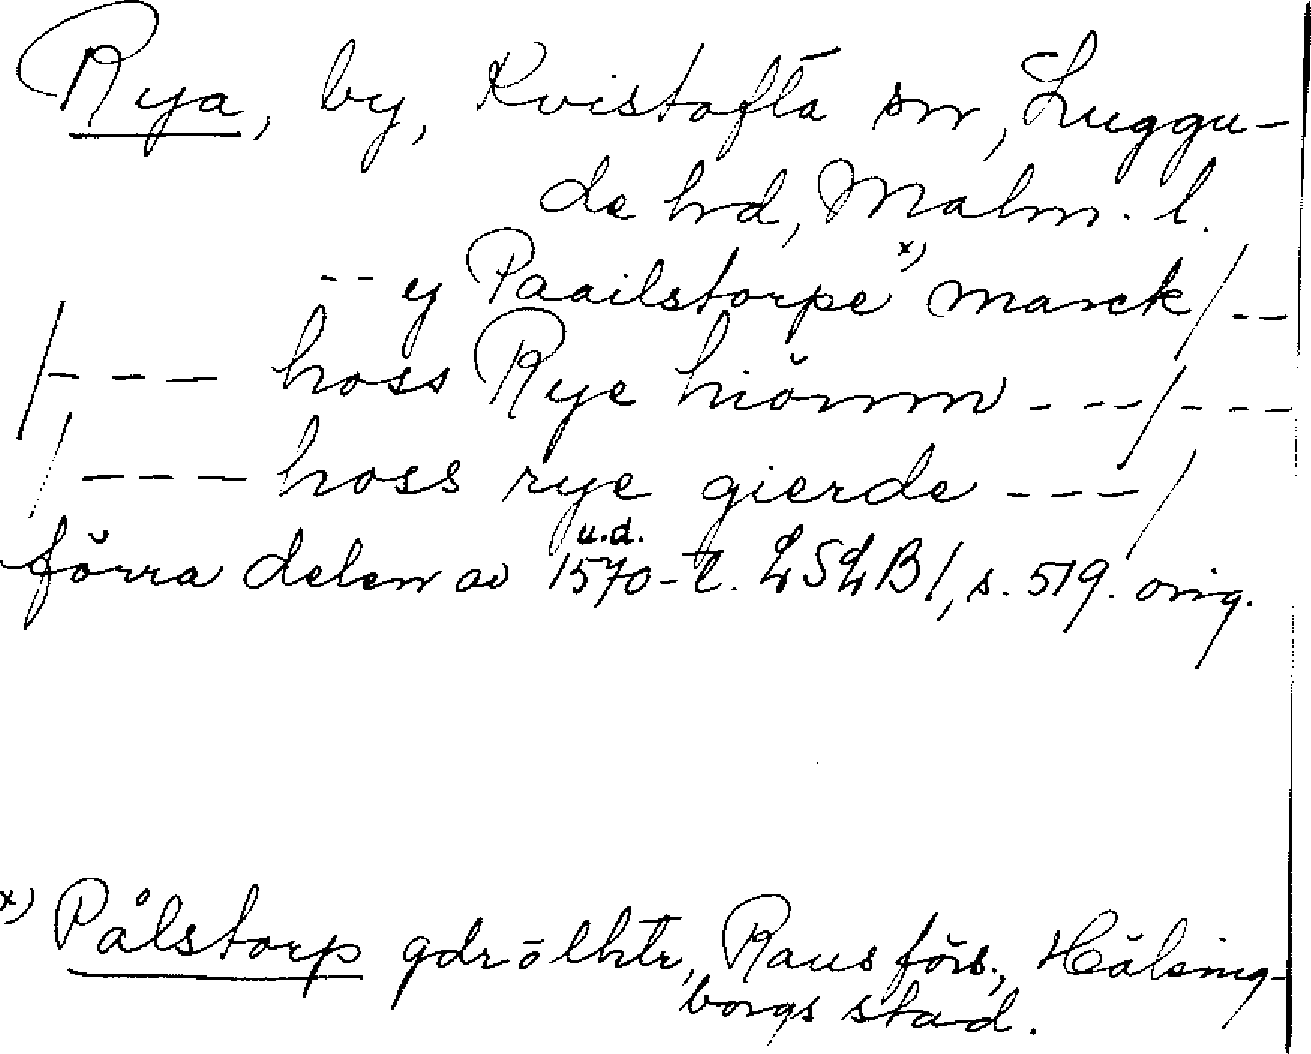 Rya, by, Kvistofta sn, Luggu-
de hd, Malm. l.
-- y Paailstorpe x) marck/--
/--- hoss Rye hiörnn ---/---
/--- hoss rye gierde ---/
u.d.
förra delen av 1570-t. LSLB1, s. 519. orig.
x) Pålstorp gdr o lhtr, Raus förs., Hälsing-
borgs stad.